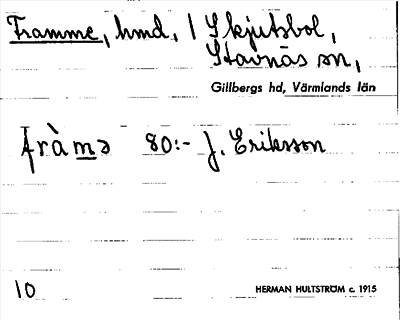 Framme, hmd, / Skjutsbol,
Stavnäs sn,
Gillbergs hd, Värmlands län
fràmə 80:- J. Eriksson
10
HERMAN HULTSTRÖM c. 1915